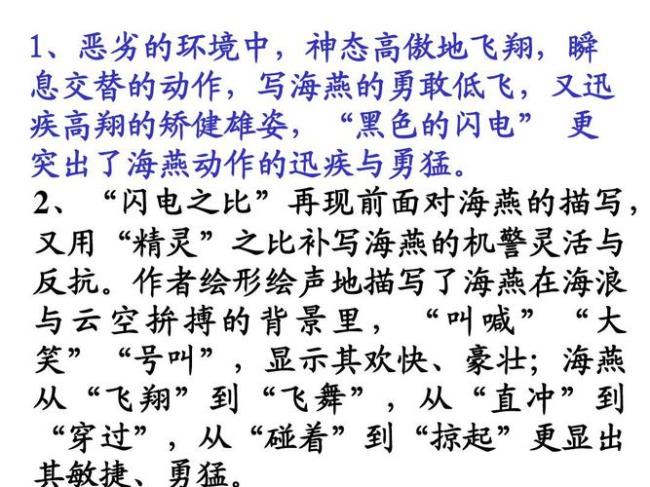 1、恶劣的环境中，神态高傲地飞翔，瞬
息交替的动作，写海燕的勇敢低飞，又迅
疾高翔的矫健雄姿，“黑色的闪电” 更
突出了海燕动作的迅疾与勇猛。
2、“闪电之比”再现前面对海燕的描写，
又用“精灵”之比补写海燕的机警灵活与
反抗。作者绘形绘声地描写了海燕在海浪
与云空拚搏的背景里，“叫喊”“大
笑”“号叫”，显示其欢快、豪壮；海燕
从“飞翔”到“飞舞”，从“直冲”到
“穿过”，从“碰着”到“掠起”更显出
其敏捷、勇猛。